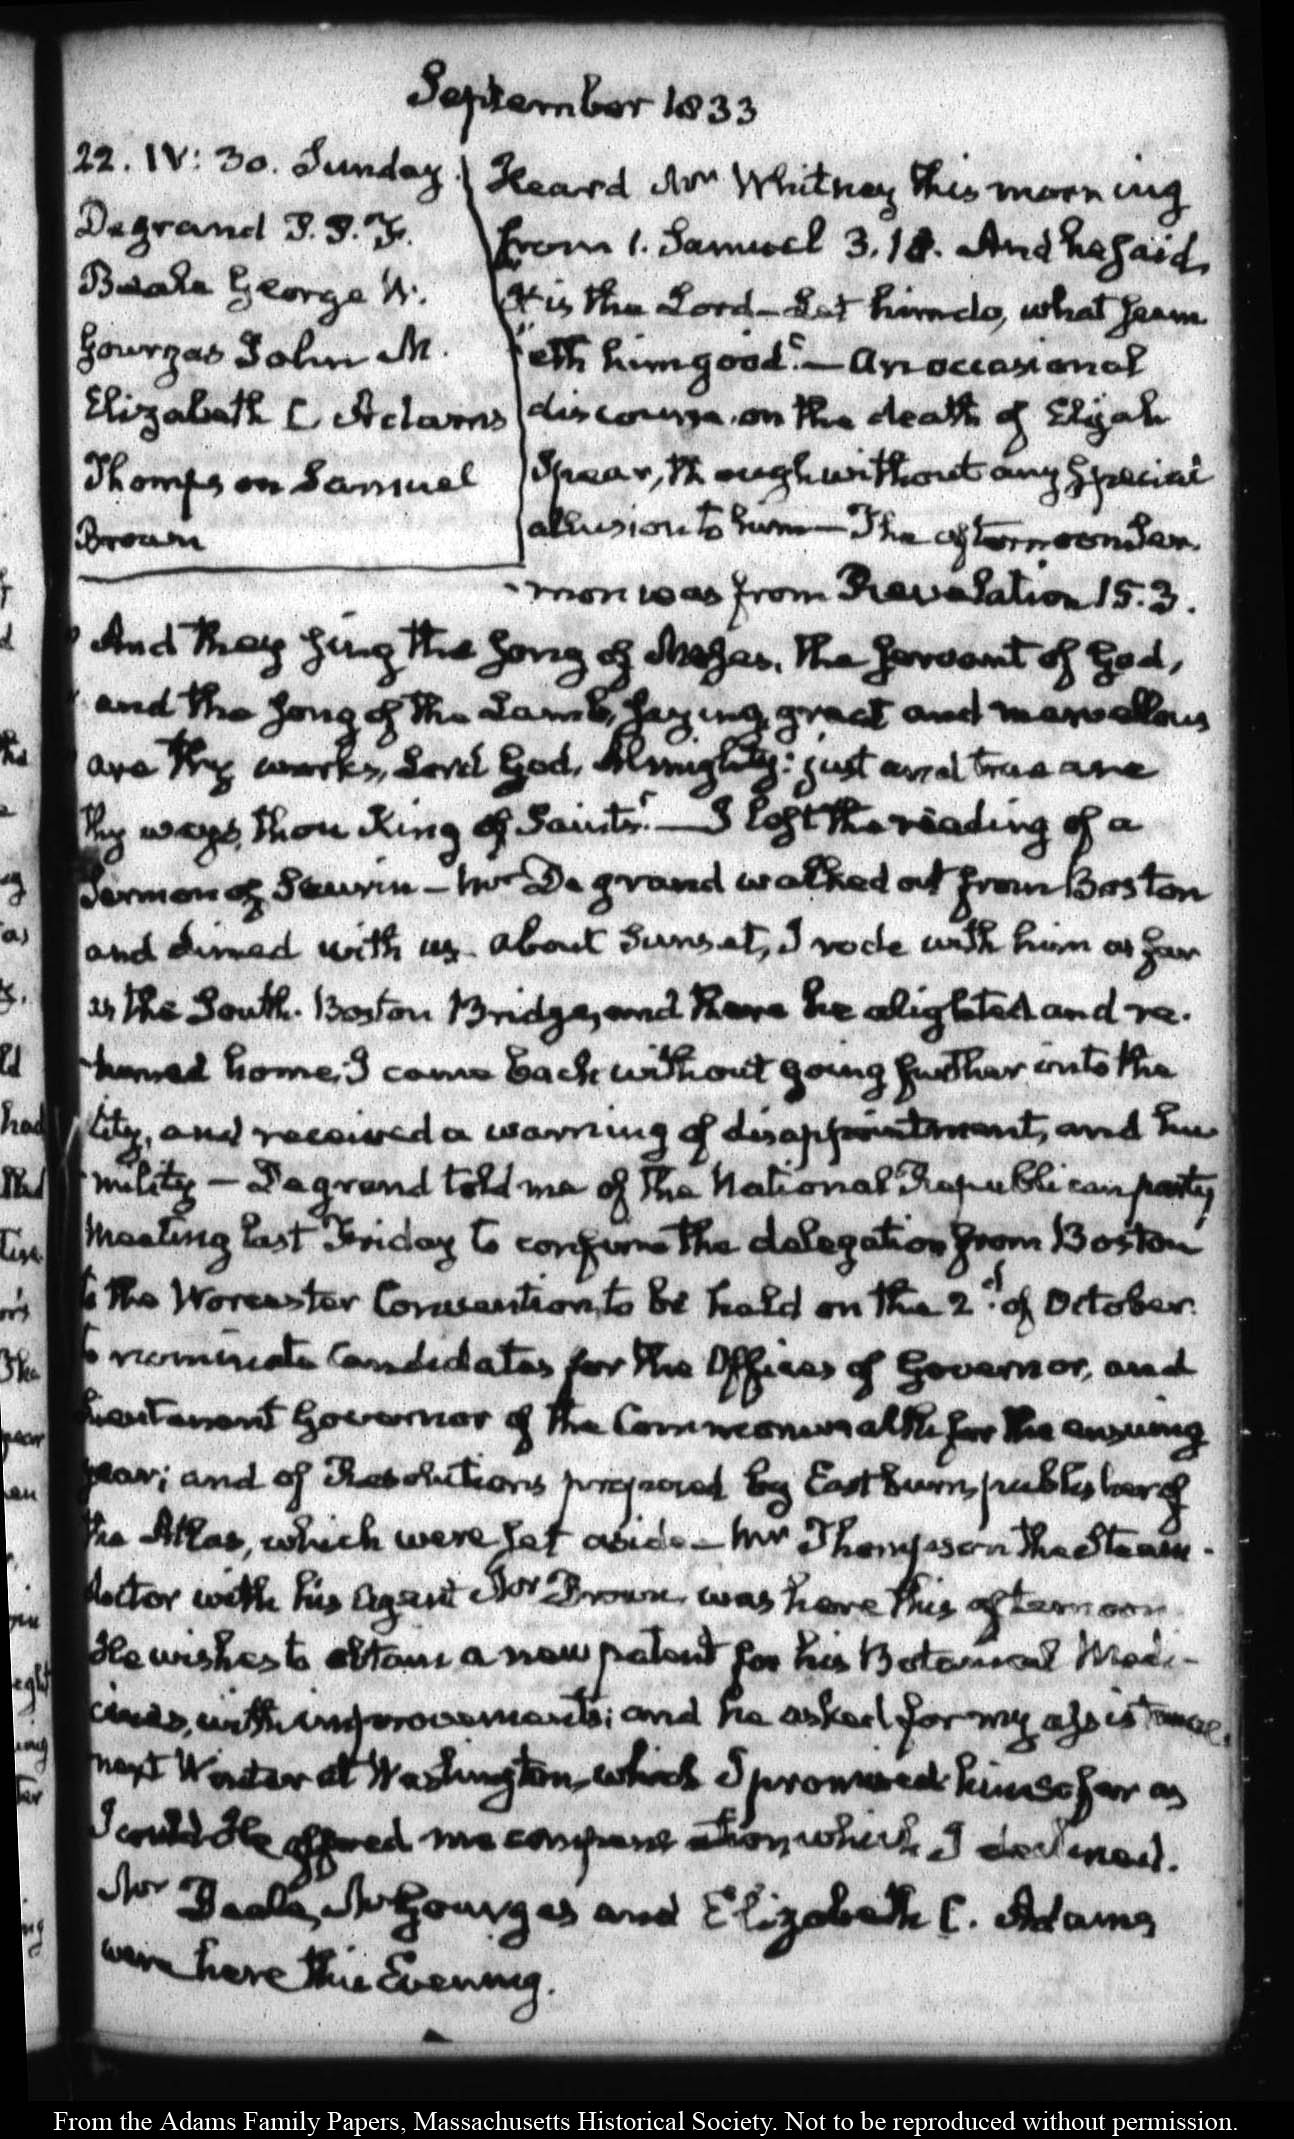 September 1833
22. IV: 30. Sunday.
Degrand P. P. F.
Beale George W.
Gourgas John M.
Elizabeth C Adams
Thompson Samuel
Brown
Heard Mr Whitney this morning
from 1. Samuel 3.18. And he said,
It is the Lord – Let him do, what seem
"eth him good". — An occasional
discourse on the death of Elijah
Spear, though without any special
allusion to him — The afternoon Ser-
-mon was from Revelation 15.3.
And they sing the song of Moses, the servant of God,
and the song of the Lamb, saying, great and marvellous
are thy works, Lord God, Almighty: just and true are
thy ways, thou King of Saints." — I left the reading of a
Sermon of Saurin — Mr Degrand walked out from Boston
and dined with us. About Sunset, I rode with him as far
as the South-Boston Bridge, and there he alighted and re-
-turned home; I came back without going further into the
City, and received a warning of disappointment, and hu-
-mility — Degrand told me of the National Republican party
Meeting last Friday to confirm the delegation from Boston
to the Worcester Convention, to be held on the 2d. of October
to nominate Candidates for the Offices of Governor, and
Lieutenant Governor of the Commonwealth for the ensuing
year; and of Resolutions proposed by Eastburn, publisher of
the Atlas, which were set aside — Mr Thompson the Steam-
doctor with his Agent Mr Brown, was here this afternoon
He wishes to obtain a new patent for his Botanical Medi-
cines, with improvements; and he asked for my assistance,
next Winter at Washington, which I promised him so far as
I could. He offered me compensation, which I declined.
Mr Beale, Mr Gourgas and Elizabeth C. Adams
were here this Evening.
From the Adams Family Papers, Massachusetts Historical Society. Not to be reproduced without permission.